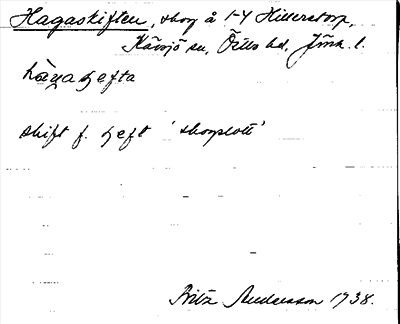 Hagaskiften, skog å 1-4 Hillerstorp,
Kävsjö sn, Östbo hd, Jönk. l.
hàga ʒefta
skift f. ʒeft 'skogslott'
Fritz Andersson 1938.